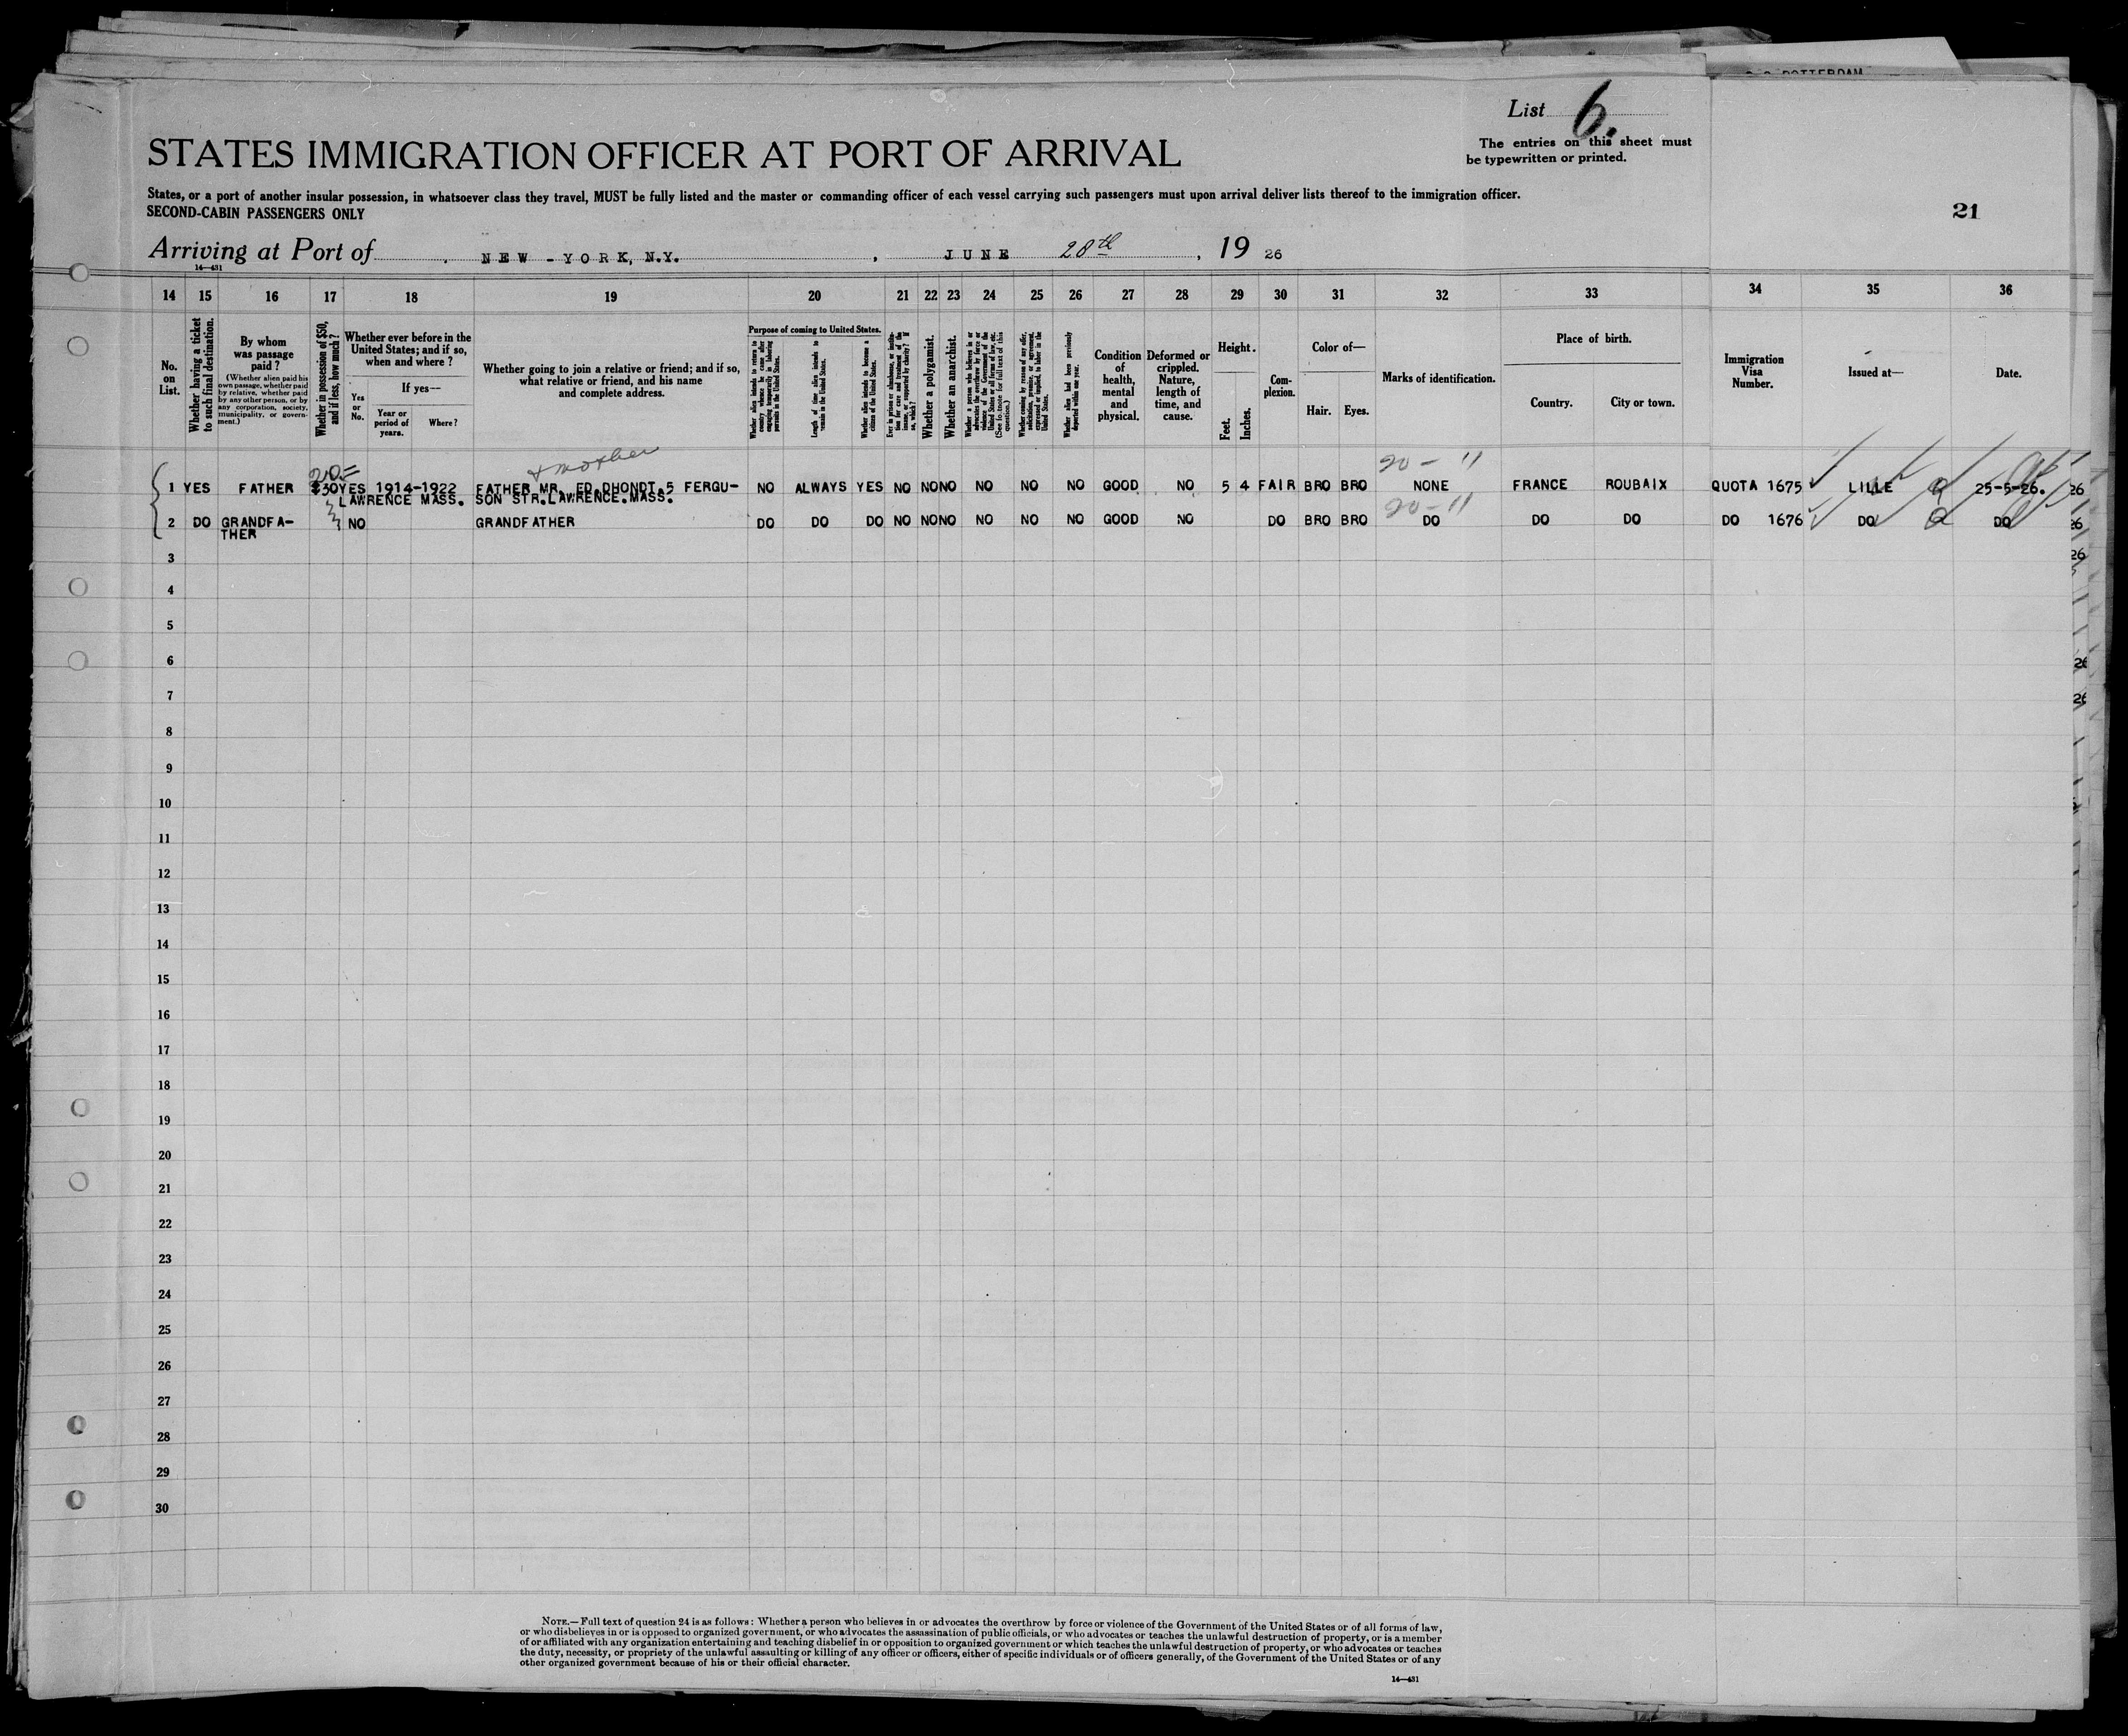 S.S. ROTTERDAM
List 6.
The entries on this sheet must
be typewritten or printed.
STATES IMMIGRATION OFFICER AT PORT OF ARRIVAL
States, or a port of another insular possession, in whatsoever class they travel, MUST be fully listed and the master or commanding officer of each vessel carrying such passengers must upon arrival deliver lists thereof to the immigration officer.
SECOND-CABIN PASSENGERS ONLY
21
Arriving at Port of NEW-YORK, N.Y., JUNE 28th, 1926
14—431
14 15 16 17 18 19 20 21 22 23 24 25 26 27 28 29 30 31 32 33 34 35 36
No. on List.
Whether having a ticket to such final destination.
By whom was passage paid?
(Whether alien paid his own passage, whether paid by relative, whether paid by any other person, or by any corporation, society, municipality, or government.)
Whether in possession of $50, and if less, how much?
Whether ever before in the United States; and if so, when and where?
If yes—
Yes or No.
Year or period of years.
Where?
Whether going to join a relative or friend; and if so, what relative or friend, and his name and complete address.
Purpose of coming to United States.
Whether alien intends to return to country whence he came after engaging temporarily in laboring pursuits in the United States.
Length of time alien intends to remain in the United States.
Whether alien intends to become a citizen of the United States.
Ever in prison or almshouse, or institution for care and treatment of the insane, or supported by charity? If so, which?
Whether a polygamist.
Whether an anarchist.
Whether a person who believes in or advocates the overthrow by force or violence of the Government of the United States or all forms of law, etc. (See footnote for full text of this question.)
Whether coming by reason of any offer, solicitation, promise, or agreement, expressed or implied, to labor in the United States.
Whether alien had been previously deported within one year.
Condition of health, mental and physical.
Deformed or crippled. Nature, length of time, and cause.
Height.
Feet. Inches.
Complexion.
Color of—
Hair. Eyes.
Marks of identification.
Place of birth.
Country. City or town.
Immigration Visa Number.
Issued at—
Date.
20= & mother 20 - 11
1 YES FATHER $30 YES 1914-1922 FATHER MR. ED.DHONDT 5 FERGU- NO ALWAYS YES NO NO NO NO NO NO GOOD NO 5 4 FAIR BRO BRO NONE FRANCE ROUBAIX QUOTA 1675 LILLE 25-5-26. 26
LAWRENCE MASS. SON STR.LAWRENCE.MASS.
20-11
2 DO GRANDFA- NO GRANDFATHER DO DO DO NO NO NO NO NO NO GOOD NO DO BRO BRO DO DO DO DO 1676 DO DO 26
THER
3 26
4
5
6 26
7 26
8
9
10
11
12
13
14
15
16
17
18
19
20
21
22
23
24
25
26
27
28
29
30
NOTE.—Full text of question 24 is as follows: Whether a person who believes in or advocates the overthrow by force or violence of the Government of the United States or of all forms of law,
or who disbelieves in or is opposed to organized government, or who advocates the assassination of public officials, or who advocates or teaches the unlawful destruction of property, or is a member
of or affiliated with any organization entertaining and teaching disbelief in or opposition to organized government or which teaches the unlawful destruction of property, or who advocates or teaches
the duty, necessity, or propriety of the unlawful assaulting or killing of any officer or officers, either of specific individuals or of officers generally, of the Government of the United States or of any
other organized government because of his or their official character.
14—431